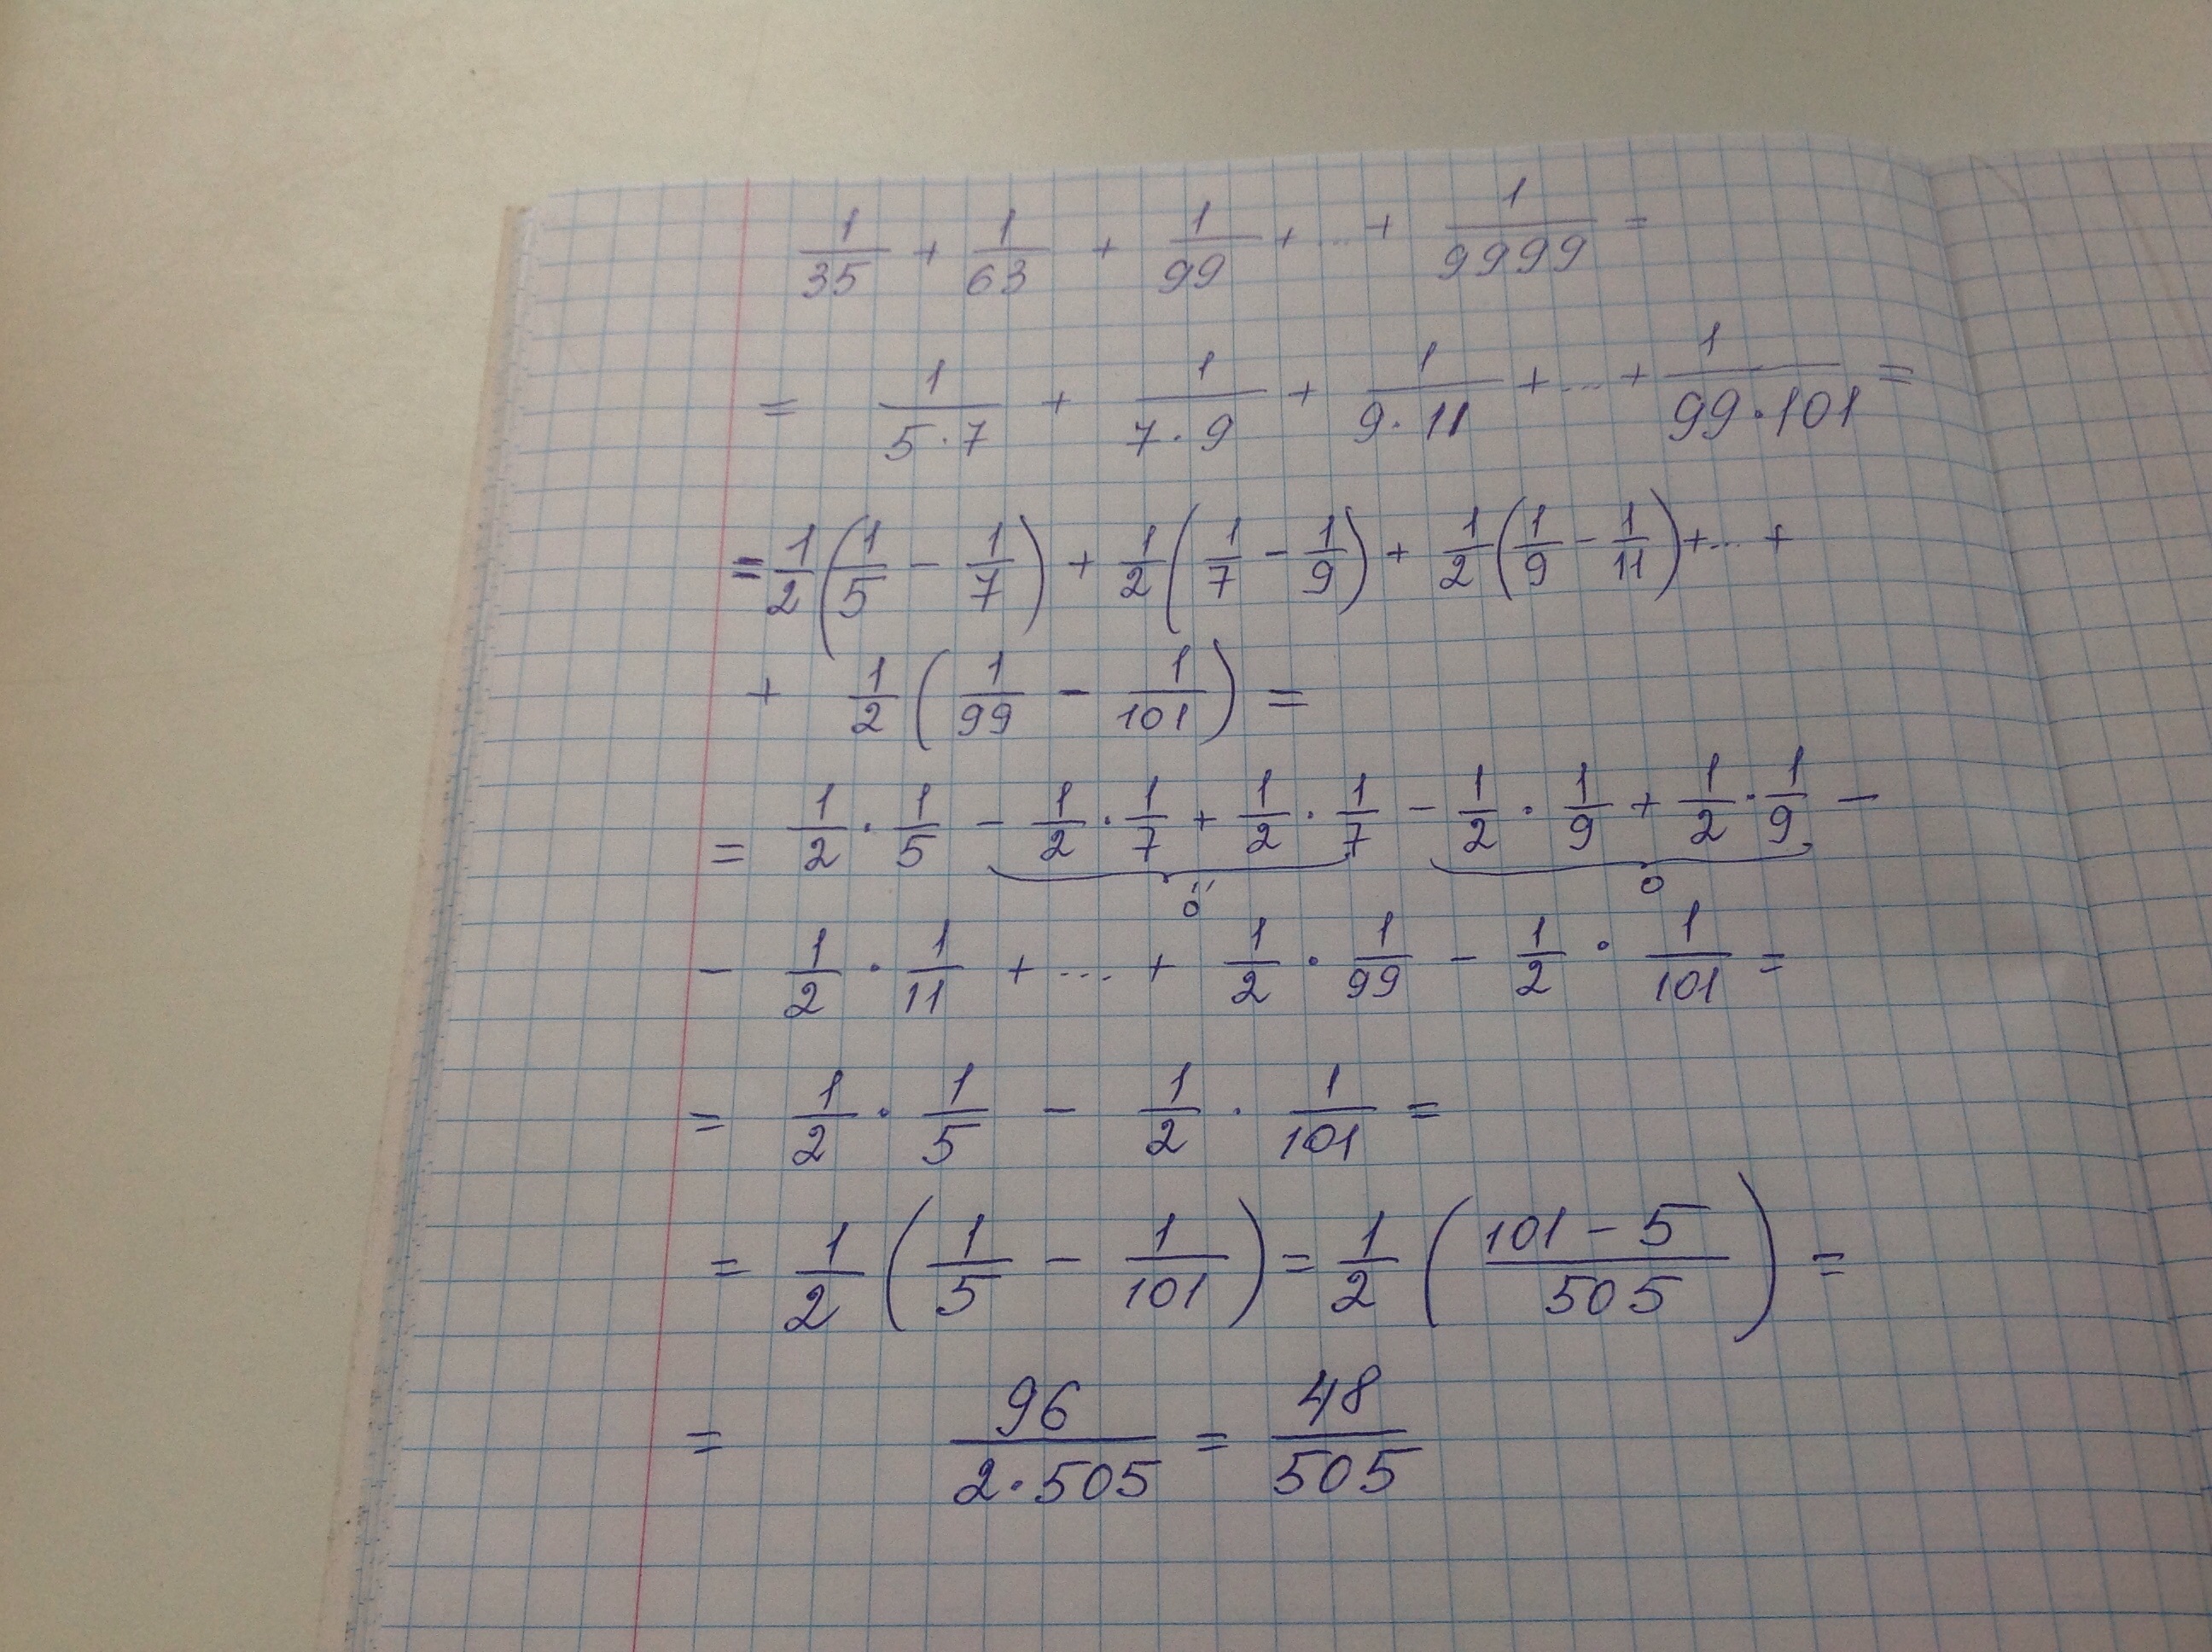 1/35 + 1/63 + 1/99 + ... + 1/9999 =
= 1/(5·7) + 1/(7·9) + 1/(9·11) + ... + 1/(99·101) =
= 1/2 (1/5 - 1/7) + 1/2 (1/7 - 1/9) + 1/2 (1/9 - 1/11) + ... +
+ 1/2 (1/99 - 1/101) =
= 1/2 · 1/5 - 1/2 · 1/7 + 1/2 · 1/7 - 1/2 · 1/9 + 1/2 · 1/9 -
0 0
- 1/2 · 1/11 + ... + 1/2 · 1/99 - 1/2 · 1/101 =
= 1/2 · 1/5 - 1/2 · 1/101 =
= 1/2 (1/5 - 1/101) = 1/2 ((101 - 5)/505) =
= 96/(2·505) = 48/505